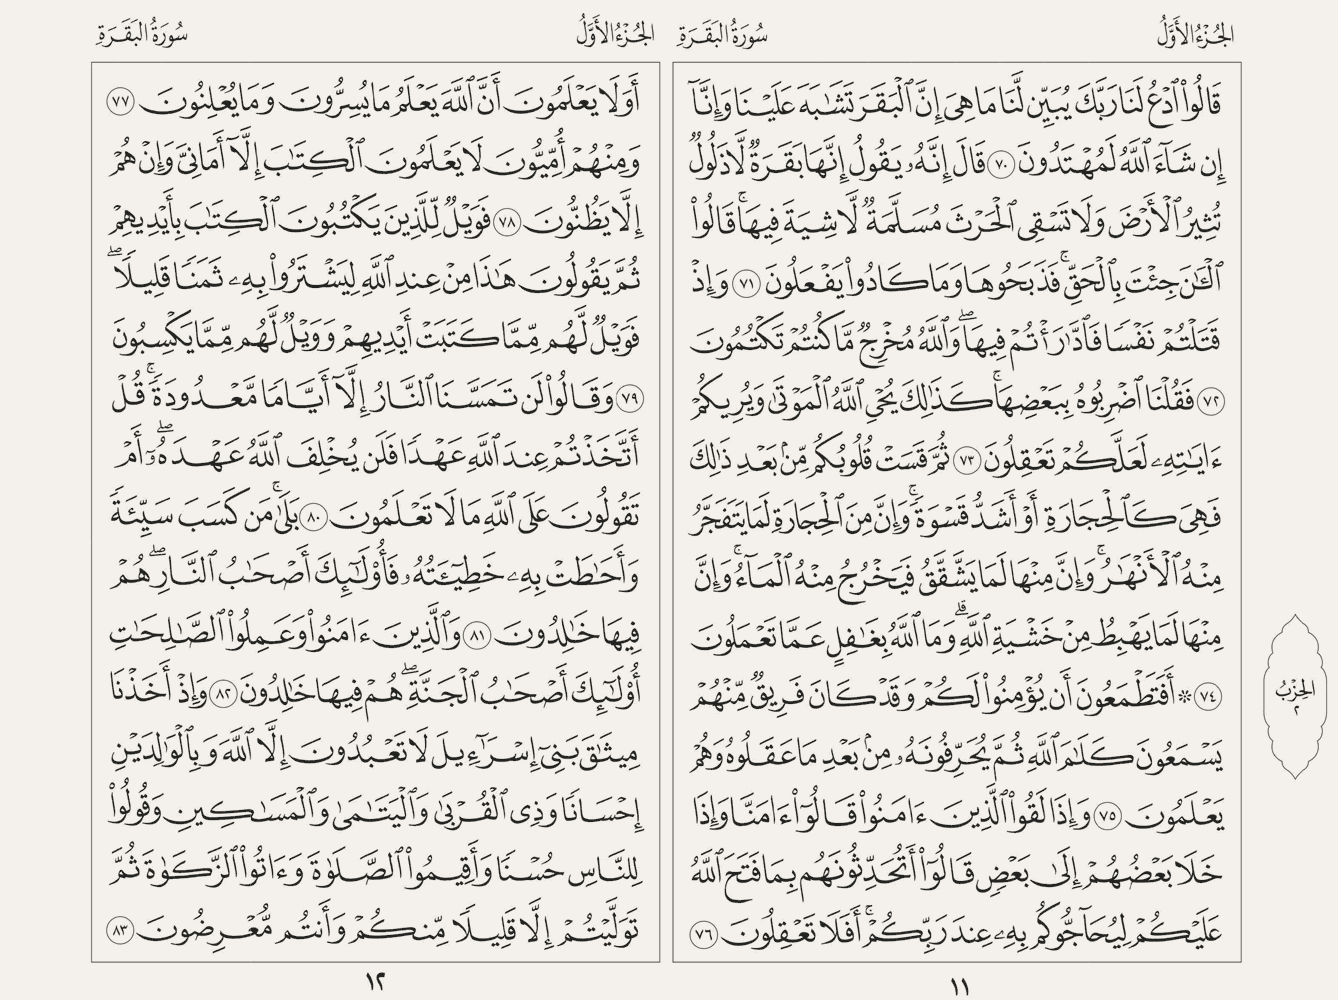 الجُزْءُ الأَوَّلُ سُورَةُ البَقَرَةِ
قَالُوا۟ ٱدْعُ لَنَا رَبَّكَ يُبَيِّن لَّنَا مَا هِىَ إِنَّ ٱلْبَقَرَ تَشَـٰبَهَ عَلَيْنَا وَإِنَّآ
إِن شَآءَ ٱللَّهُ لَمُهْتَدُونَ ٧٠ قَالَ إِنَّهُۥ يَقُولُ إِنَّهَا بَقَرَةٌ لَّا ذَلُولٌ
تُثِيرُ ٱلْأَرْضَ وَلَا تَسْقِى ٱلْحَرْثَ مُسَلَّمَةٌ لَّا شِيَةَ فِيهَا ۚ قَالُوا۟
ٱلْـَٔـٰنَ جِئْتَ بِٱلْحَقِّ ۚ فَذَبَحُوهَا وَمَا كَادُوا۟ يَفْعَلُونَ ٧١ وَإِذْ
قَتَلْتُمْ نَفْسًا فَٱدَّٰرَْٰٔتُمْ فِيهَا ۖ وَٱللَّهُ مُخْرِجٌ مَّا كُنتُمْ تَكْتُمُونَ
٧٢ فَقُلْنَا ٱضْرِبُوهُ بِبَعْضِهَا ۚ كَذَٰلِكَ يُحْىِ ٱللَّهُ ٱلْمَوْتَىٰ وَيُرِيكُمْ
ءَايَـٰتِهِۦ لَعَلَّكُمْ تَعْقِلُونَ ٧٣ ثُمَّ قَسَتْ قُلُوبُكُم مِّنۢ بَعْدِ ذَٰلِكَ
فَهِىَ كَٱلْحِجَارَةِ أَوْ أَشَدُّ قَسْوَةً ۚ وَإِنَّ مِنَ ٱلْحِجَارَةِ لَمَا يَتَفَجَّرُ
مِنْهُ ٱلْأَنْهَـٰرُ ۚ وَإِنَّ مِنْهَا لَمَا يَشَّقَّقُ فَيَخْرُجُ مِنْهُ ٱلْمَآءُ ۚ وَإِنَّ
مِنْهَا لَمَا يَهْبِطُ مِنْ خَشْيَةِ ٱللَّهِ ۗ وَمَا ٱللَّهُ بِغَـٰفِلٍ عَمَّا تَعْمَلُونَ
٧٤ ۞ أَفَتَطْمَعُونَ أَن يُؤْمِنُوا۟ لَكُمْ وَقَدْ كَانَ فَرِيقٌ مِّنْهُمْ
يَسْمَعُونَ كَلَـٰمَ ٱللَّهِ ثُمَّ يُحَرِّفُونَهُۥ مِنۢ بَعْدِ مَا عَقَلُوهُ وَهُمْ
يَعْلَمُونَ ٧٥ وَإِذَا لَقُوا۟ ٱلَّذِينَ ءَامَنُوا۟ قَالُوٓا۟ ءَامَنَّا وَإِذَا
خَلَا بَعْضُهُمْ إِلَىٰ بَعْضٍ قَالُوٓا۟ أَتُحَدِّثُونَهُم بِمَا فَتَحَ ٱللَّهُ
عَلَيْكُمْ لِيُحَآجُّوكُم بِهِۦ عِندَ رَبِّكُمْ ۚ أَفَلَا تَعْقِلُونَ ٧٦
١١
الحِزْبُ
٢
الجُزْءُ الأَوَّلُ سُورَةُ البَقَرَةِ
أَوَلَا يَعْلَمُونَ أَنَّ ٱللَّهَ يَعْلَمُ مَا يُسِرُّونَ وَمَا يُعْلِنُونَ ٧٧
وَمِنْهُمْ أُمِّيُّونَ لَا يَعْلَمُونَ ٱلْكِتَـٰبَ إِلَّآ أَمَانِىَّ وَإِنْ هُمْ
إِلَّا يَظُنُّونَ ٧٨ فَوَيْلٌ لِّلَّذِينَ يَكْتُبُونَ ٱلْكِتَـٰبَ بِأَيْدِيهِمْ
ثُمَّ يَقُولُونَ هَـٰذَا مِنْ عِندِ ٱللَّهِ لِيَشْتَرُوا۟ بِهِۦ ثَمَنًا قَلِيلًا ۖ
فَوَيْلٌ لَّهُم مِّمَّا كَتَبَتْ أَيْدِيهِمْ وَوَيْلٌ لَّهُم مِّمَّا يَكْسِبُونَ
٧٩ وَقَالُوا۟ لَن تَمَسَّنَا ٱلنَّارُ إِلَّآ أَيَّامًا مَّعْدُودَةً ۚ قُلْ
أَتَّخَذْتُمْ عِندَ ٱللَّهِ عَهْدًا فَلَن يُخْلِفَ ٱللَّهُ عَهْدَهُۥٓ ۖ أَمْ
تَقُولُونَ عَلَى ٱللَّهِ مَا لَا تَعْلَمُونَ ٨٠ بَلَىٰ ۚ مَن كَسَبَ سَيِّئَةً
وَأَحَـٰطَتْ بِهِۦ خَطِيٓـَٔتُهُۥ فَأُو۟لَـٰٓئِكَ أَصْحَـٰبُ ٱلنَّارِ ۖ هُمْ
فِيهَا خَـٰلِدُونَ ٨١ وَٱلَّذِينَ ءَامَنُوا۟ وَعَمِلُوا۟ ٱلصَّـٰلِحَـٰتِ
أُو۟لَـٰٓئِكَ أَصْحَـٰبُ ٱلْجَنَّةِ ۖ هُمْ فِيهَا خَـٰلِدُونَ ٨٢ وَإِذْ أَخَذْنَا
مِيثَـٰقَ بَنِىٓ إِسْرَٰٓءِيلَ لَا تَعْبُدُونَ إِلَّا ٱللَّهَ وَبِٱلْوَٰلِدَيْنِ
إِحْسَانًا وَذِى ٱلْقُرْبَىٰ وَٱلْيَتَـٰمَىٰ وَٱلْمَسَـٰكِينِ وَقُولُوا۟
لِلنَّاسِ حُسْنًا وَأَقِيمُوا۟ ٱلصَّلَوٰةَ وَءَاتُوا۟ ٱلزَّكَوٰةَ ثُمَّ
تَوَلَّيْتُمْ إِلَّا قَلِيلًا مِّنكُمْ وَأَنتُم مُّعْرِضُونَ ٨٣
١٢